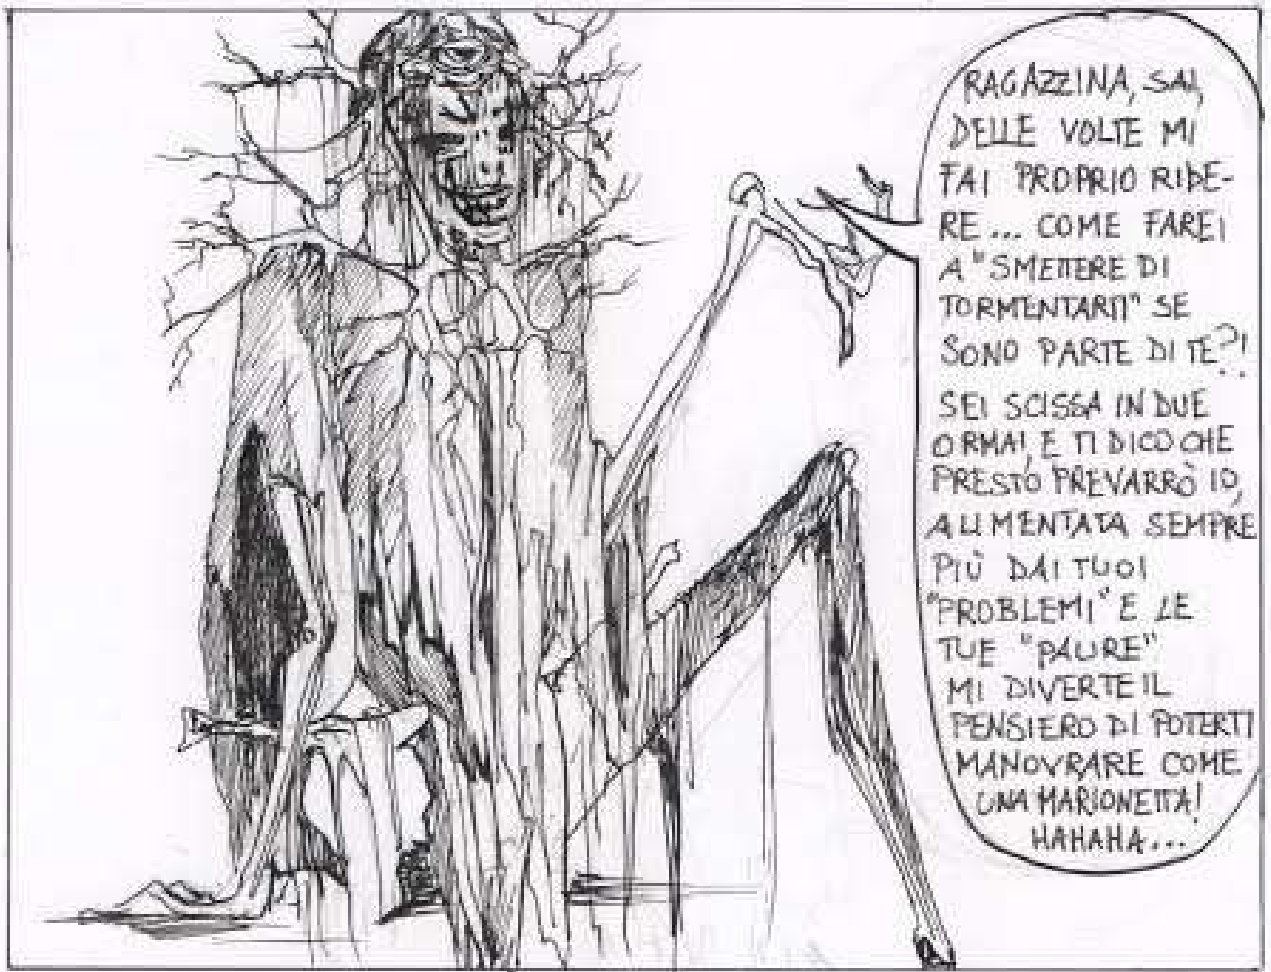 RAGAZZINA, SAI,
DELLE VOLTE MI
FAI PROPRIO RIDE-
RE... COME FAREI
A "SMETTERE DI
TORMENTARTI" SE
SONO PARTE DI TE?!
SEI SCISSA IN DUE
ORMAI, E TI DICO CHE
PRESTO PREVARRÒ IO,
ALIMENTATA SEMPRE
PIÙ DAI TUOI
"PROBLEMI" E LE
TUE "PAURE"
MI DIVERTE IL
PENSIERO DI POTERTI
MANOVRARE COME
UNA MARIONETTA!
HAHAHA...